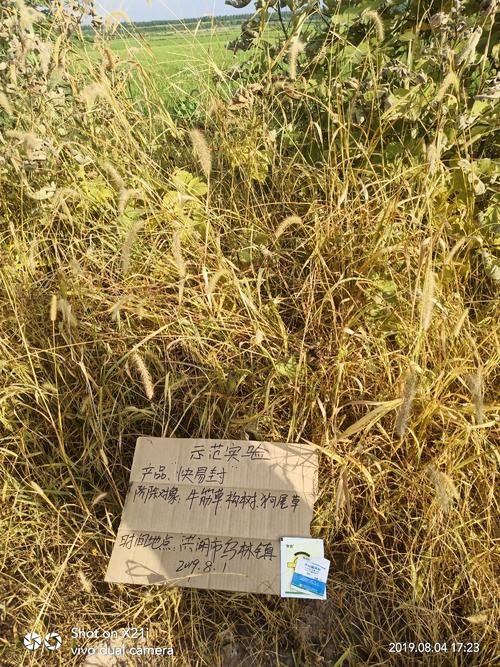 示范实验
产品:快易封
防除对象:牛筋草.构树.狗尾草
时间地点:洪湖市乌林镇
2019.8.1
Shot on X21i
vivo dual camera
2019.08.04 17:23